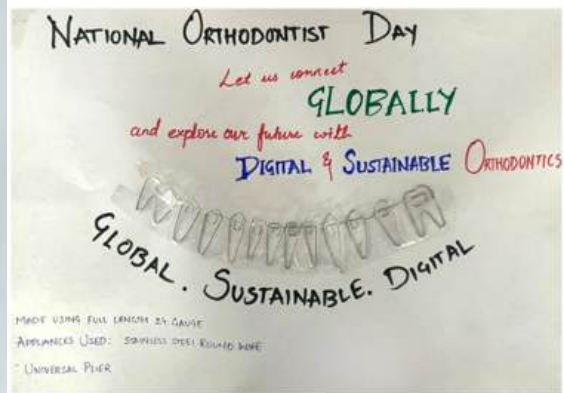 NATIONAL ORTHODONTIST DAY
Let us connect
GLOBALLY
and explore our future with
DIGITAL & SUSTAINABLE ORTHODONTICS
GLOBAL. SUSTAINABLE. DIGITAL
MADE USING FULL LENGTH 24 GAUGE
APPLIANCES USED: STAINLESS STEEL ROUND WIRE
- UNIVERSAL PLIER